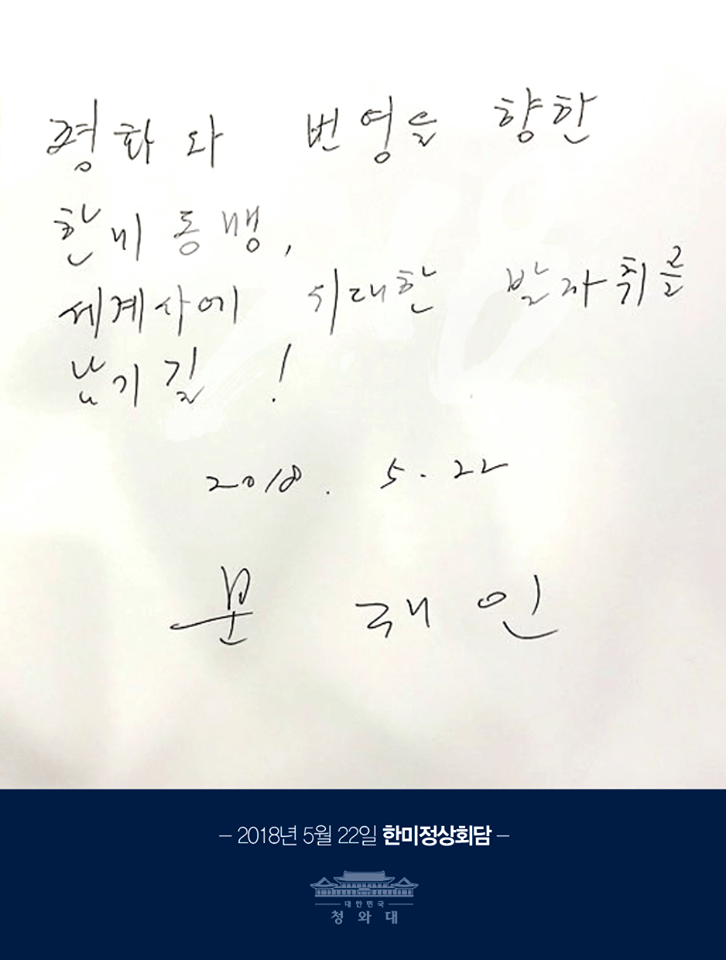 평화와 번영을 향한
한미동맹,
세계사에 위대한 발자취를
남기길!
2018. 5. 22
문 재 인
– 2018년 5월 22일 한미정상회담 –
대한민국
청와대